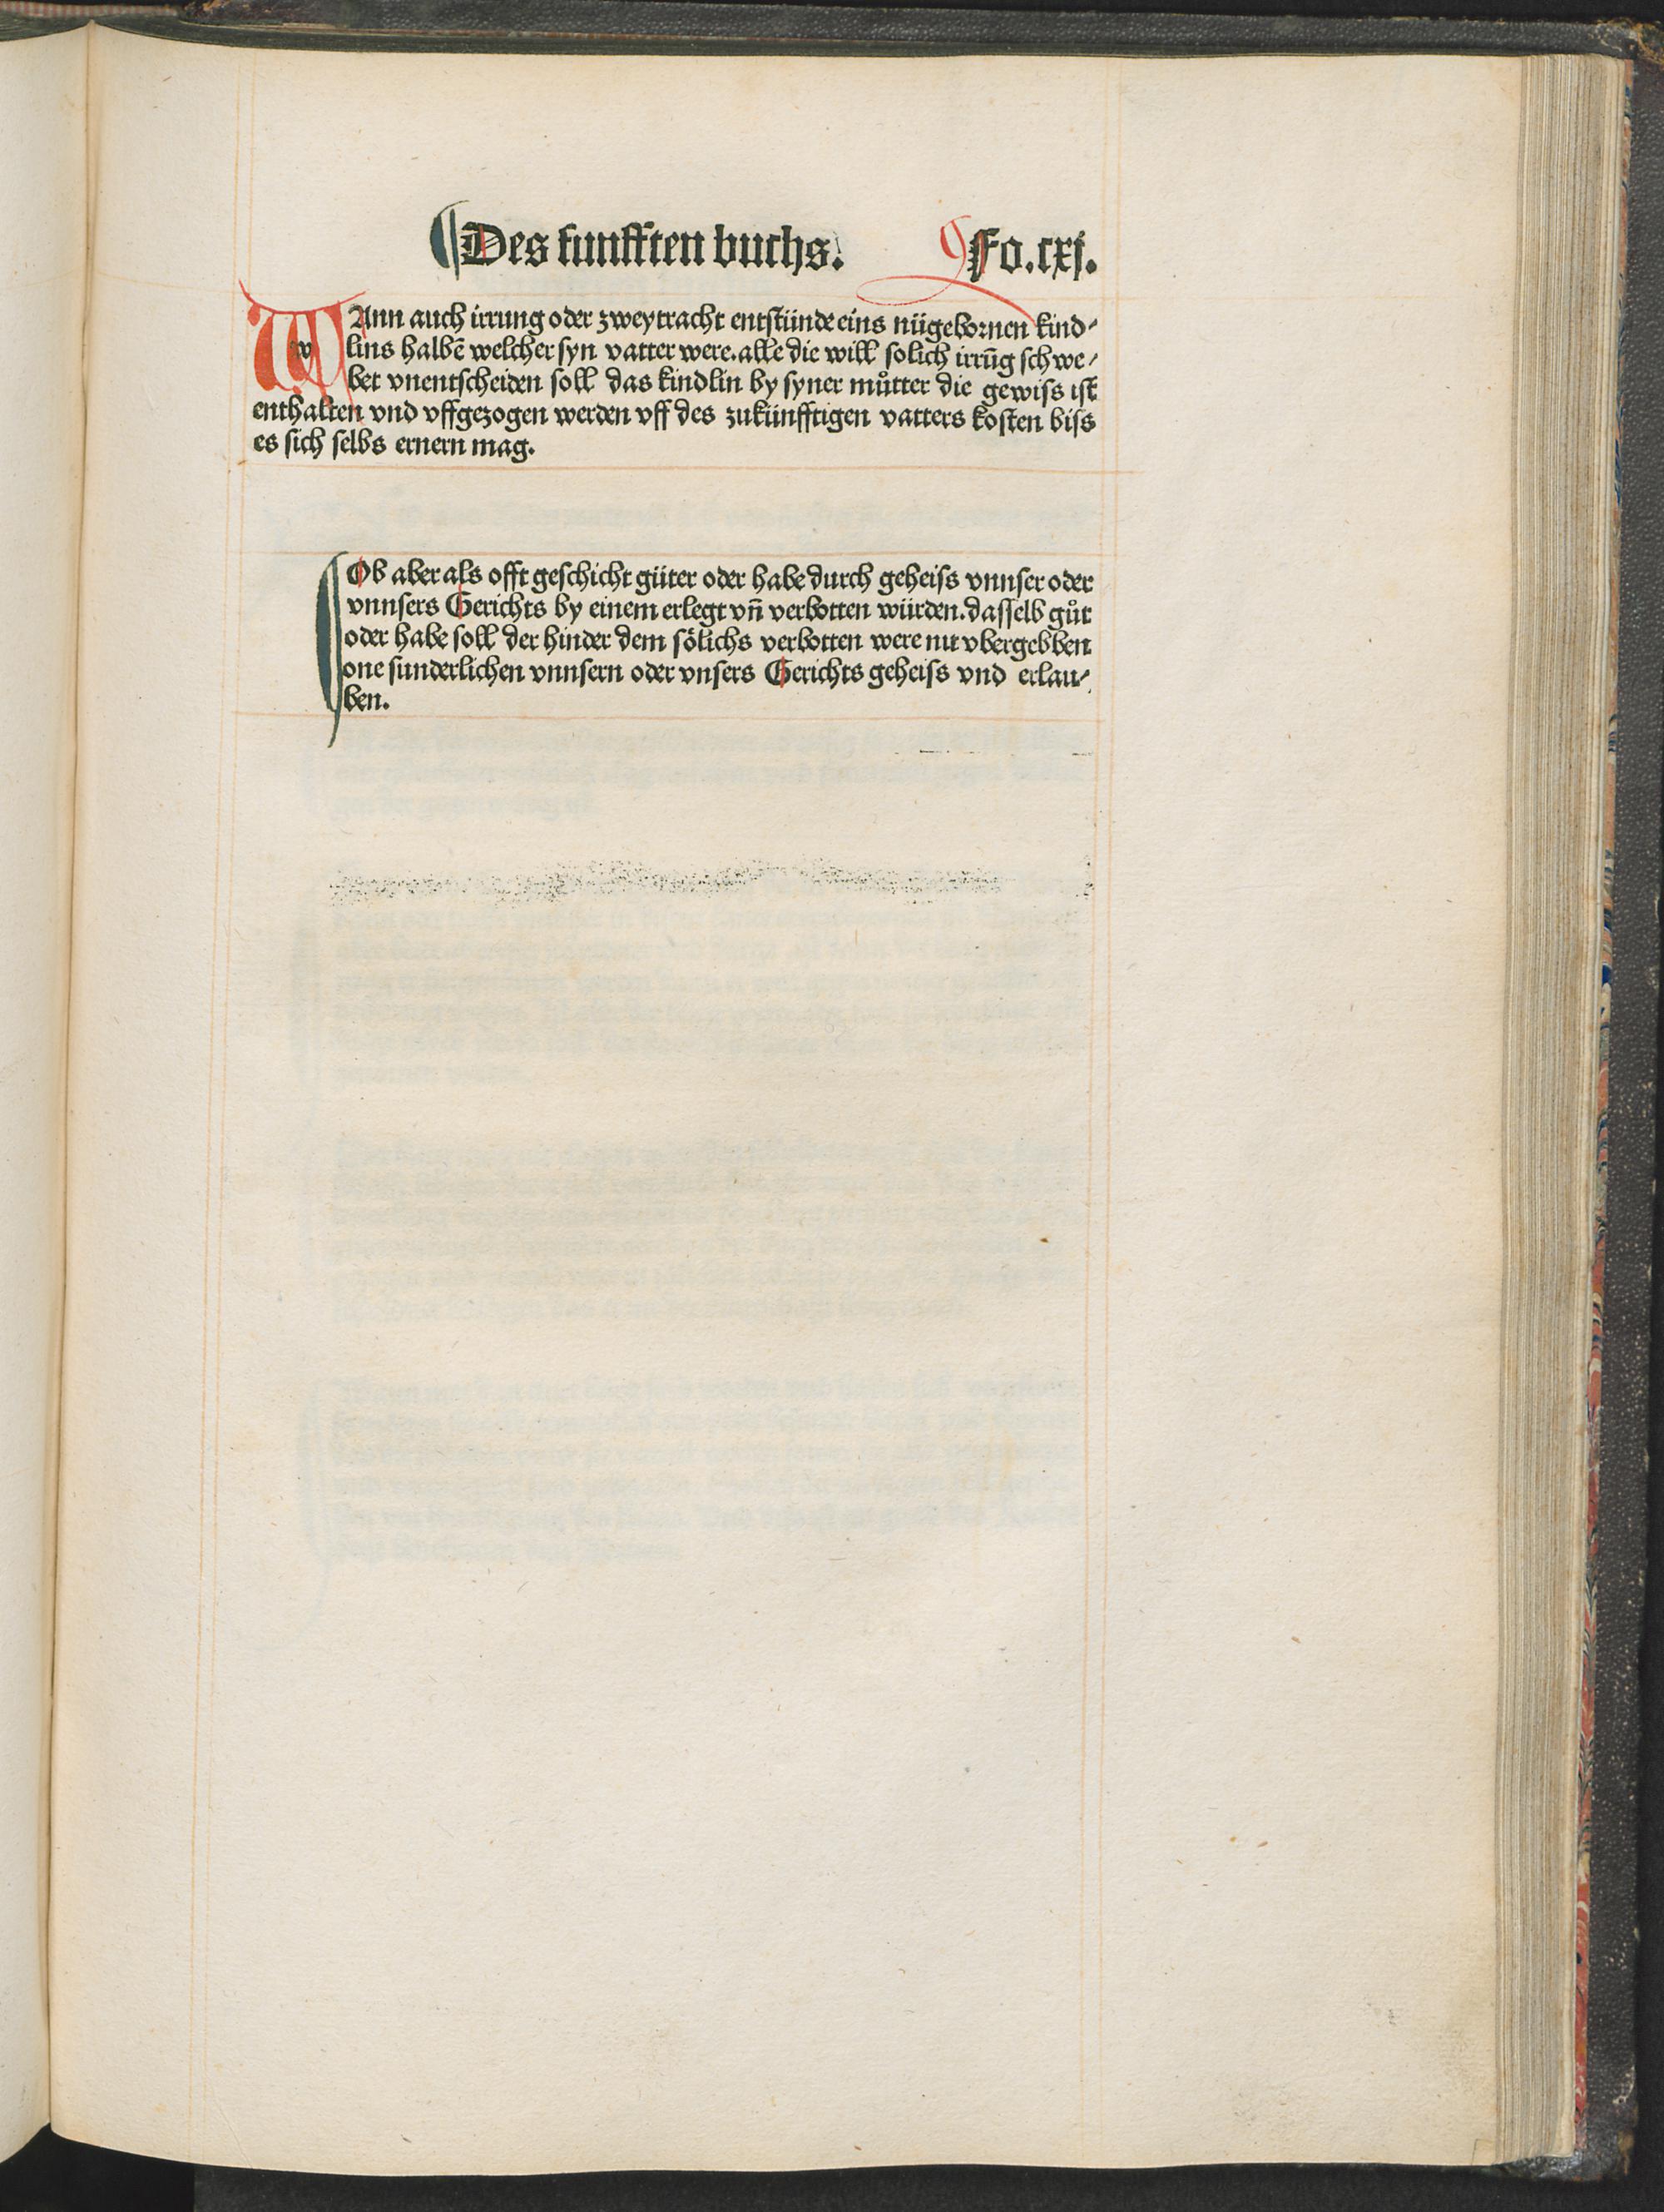 ¶ Des funfften buchs. Fo.cxj.
WAnn auch irrung oder zweytracht entstünde eins nügebornen kind⸗
lins halbē welcher syn vatter were. alle die will solich irrūg schwe⸗
bet vnentscheiden soll das kindlin by syner můtter die gewiss ist
enthalten vnd vffgezogen werden vff des zukünfftigen vatters kosten biss
es sich selbs ernern mag.
Ob aber als offt geschicht güter oder habe durch geheiss vnnser oder
vnnsers Gerichts by einem erlegt vn̄ verbotten würden. dasselb gůt
oder habe soll der hinder dem sölichs verbotten were nit vbergebben
one sunderlichen vnnsern oder vnsers Gerichts geheiss vnd erlau⸗
ben.